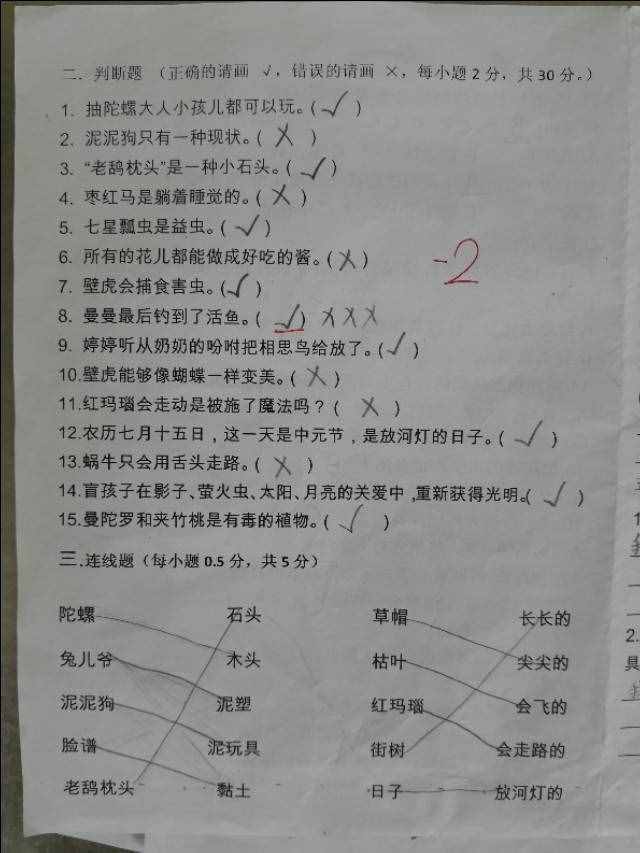 二. 判断题 （正确的请画 √，错误的请画 ×，每小题 2 分，共 30 分。）
1. 抽陀螺大人小孩儿都可以玩。( √ )
2. 泥泥狗只有一种现状。( × )
3. “老鸹枕头”是一种小石头。( √ )
4. 枣红马是躺着睡觉的。( × )
5. 七星瓢虫是益虫。( √ )
6. 所有的花儿都能做成好吃的酱。( × ) -2
7. 壁虎会捕食害虫。( √ )
8. 曼曼最后钓到了活鱼。( √ ) × × ×
9. 婷婷听从奶奶的吩咐把相思鸟给放了。( √ )
10.壁虎能够像蝴蝶一样变美。( × )
11.红玛瑙会走动是被施了魔法吗？( × )
12.农历七月十五日，这一天是中元节，是放河灯的日子。( √ )
13.蜗牛只会用舌头走路。( × )
14.盲孩子在影子、萤火虫、太阳、月亮的关爱中,重新获得光明。( √ )
15.曼陀罗和夹竹桃是有毒的植物。( √ )
三.连线题（每小题 0.5 分，共 5 分）
陀螺 石头 草帽 长长的
兔儿爷 木头 枯叶 尖尖的
泥泥狗 泥塑 红玛瑙 会飞的
脸谱 泥玩具 街树 会走路的
老鸹枕头 黏土 日子 放河灯的
2.
具